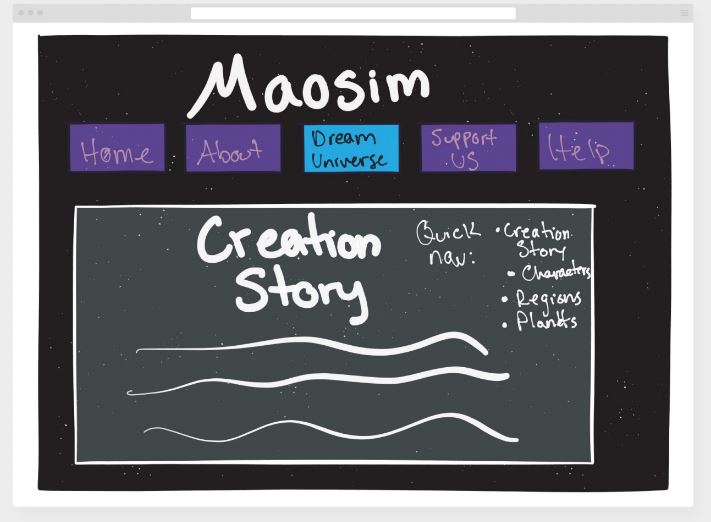 Maosim
Home
About
Dream
Universe
Support
US
Help
Creation
Story
Quick
nav:
• Creation
Story
• Characters
• Regions
• Planets